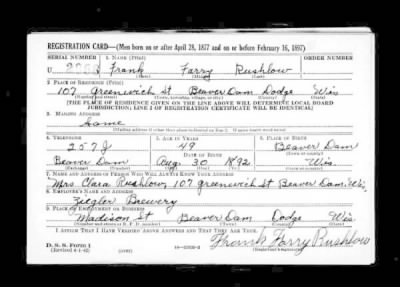 REGISTRATION CARD—(Men born on or after April 28, 1877 and on or before February 16, 1897)
SERIAL NUMBER 1. NAME (Print) ORDER NUMBER
U Frank Farry Rushlow
2. PLACE OF RESIDENCE (Print)
107 Greenwich St Beaver Dam Dodge Wis
[THE PLACE OF RESIDENCE GIVEN ON THE LINE ABOVE WILL DETERMINE LOCAL BOARD
JURISDICTION; LINE 2 OF REGISTRATION CERTIFICATE WILL BE IDENTICAL]
3. MAILING ADDRESS
Same
[Mailing address if other than place indicated on line 2. If same insert word same]
4. TELEPHONE 5. AGE IN YEARS 6. PLACE OF BIRTH
257J 49 Beaver Dam
DATE OF BIRTH
Beaver Dam Aug 30 1892 Wis
7. NAME AND ADDRESS OF PERSON WHO WILL ALWAYS KNOW YOUR ADDRESS
Mrs Clara Rushlow, 107 Greenwich St Beaver Dam, Wis
8. EMPLOYER'S NAME AND ADDRESS
Ziegler Brewery
9. PLACE OF EMPLOYMENT OR BUSINESS
Madison St Beaver Dam Dodge Wis.
I AFFIRM THAT I HAVE VERIFIED ABOVE ANSWERS AND THAT THEY ARE TRUE.
Frank Farry Rushlow
D. S. S. Form 1
(Revised 4-1-42)